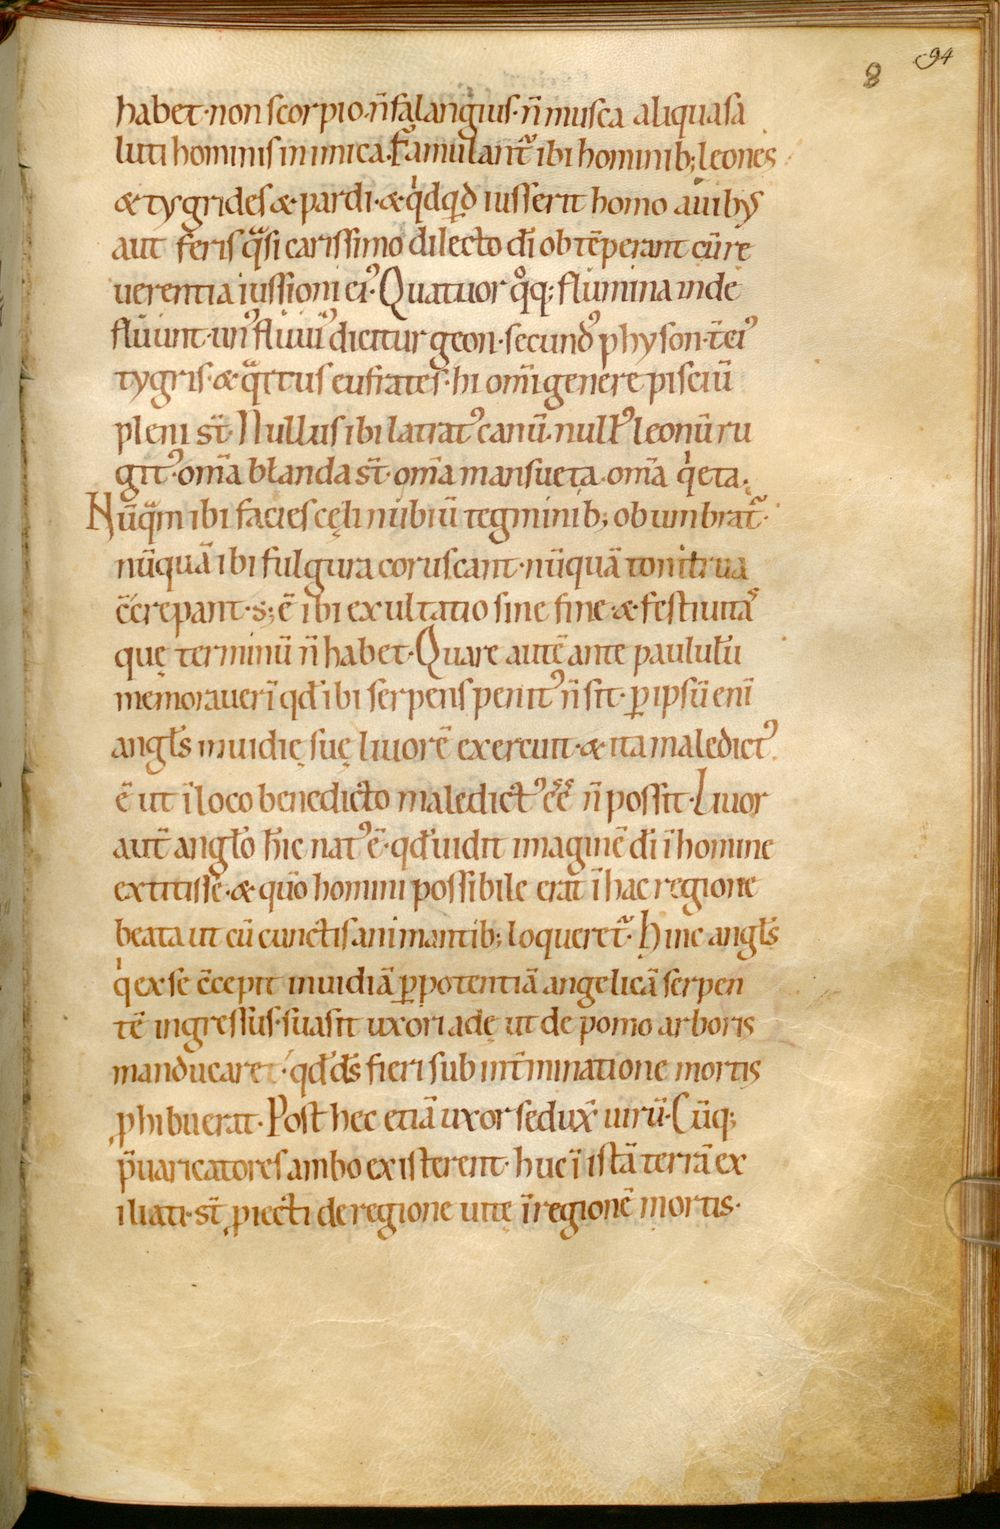 94
8
habet·non scorpio·n̄ falangius·n̄ musca aliqua sa
luti hominis inimica·Famulant᷑ ibi hominib; leones
& tygrides &·pardi·& qͥdqͥd iusserit homo auibꝰ
aut feris qͣsi carissimo dilecto dī obtēperant cū re
uerentia iussioni eiꝰ·Quatuor qͦq; flumina inde
fluunt·unꝰ fluuiꝰ dicitur geon·secundꝰ physon·t̄ciꝰ
tygris·& qͣrtus eufrates·hi om̄i genere pisciū
pleni st̄·Nullus ibi latratꝰ canū·nullꝰ leonū ru
gitꝰ·om̄a blanda st̄·om̄a mansueta·om̄a qͥeta·
Nūqͣm ibi facies cęli nubiū tegminib; obumbrat᷑·
nūquā ibi fulgura coruscant·nūquā tonitrua
c̄crepant·s; ē ibi exultatio sine fine·&·festiuitaͣ
quę terminū n̄ habet·Quare autē ante paululū
memorauerī qd̄ ibi serpens penitꝰ n̄ sit·ꝑ ipsū enī
angl̄s inuidię suę liuorē exercuit·& ita maledictꝰ
ē ut ī loco benedicto maledictꝰ ēē n̄ possit·Liuor
aut̄ angl̄o hīc natꝰ ē·qd̄ uidit imaginē dī ī homine
extitisse·& quō homini possibile erat ī hac regione
beata ut cū cunctis animantib; loqueret᷑·Hinc angl̄s
qͥ ex se c̄cepit inuidiā ꝑ potentiā angelicā serpen
tē ingressus·suasit uxori adę ut de pomo arboris
manducaret·qd̄ ds̄ fieri sub int̄minatione mortis
ꝓhibuerat·Post hec etiā uxor sedux̄ uirū·Cūq;
p̄uaricatores ambo existerent·huc ī istā terrā ex
iliati·st̄ ꝓiecti de regione uitę ī regionē mortis·